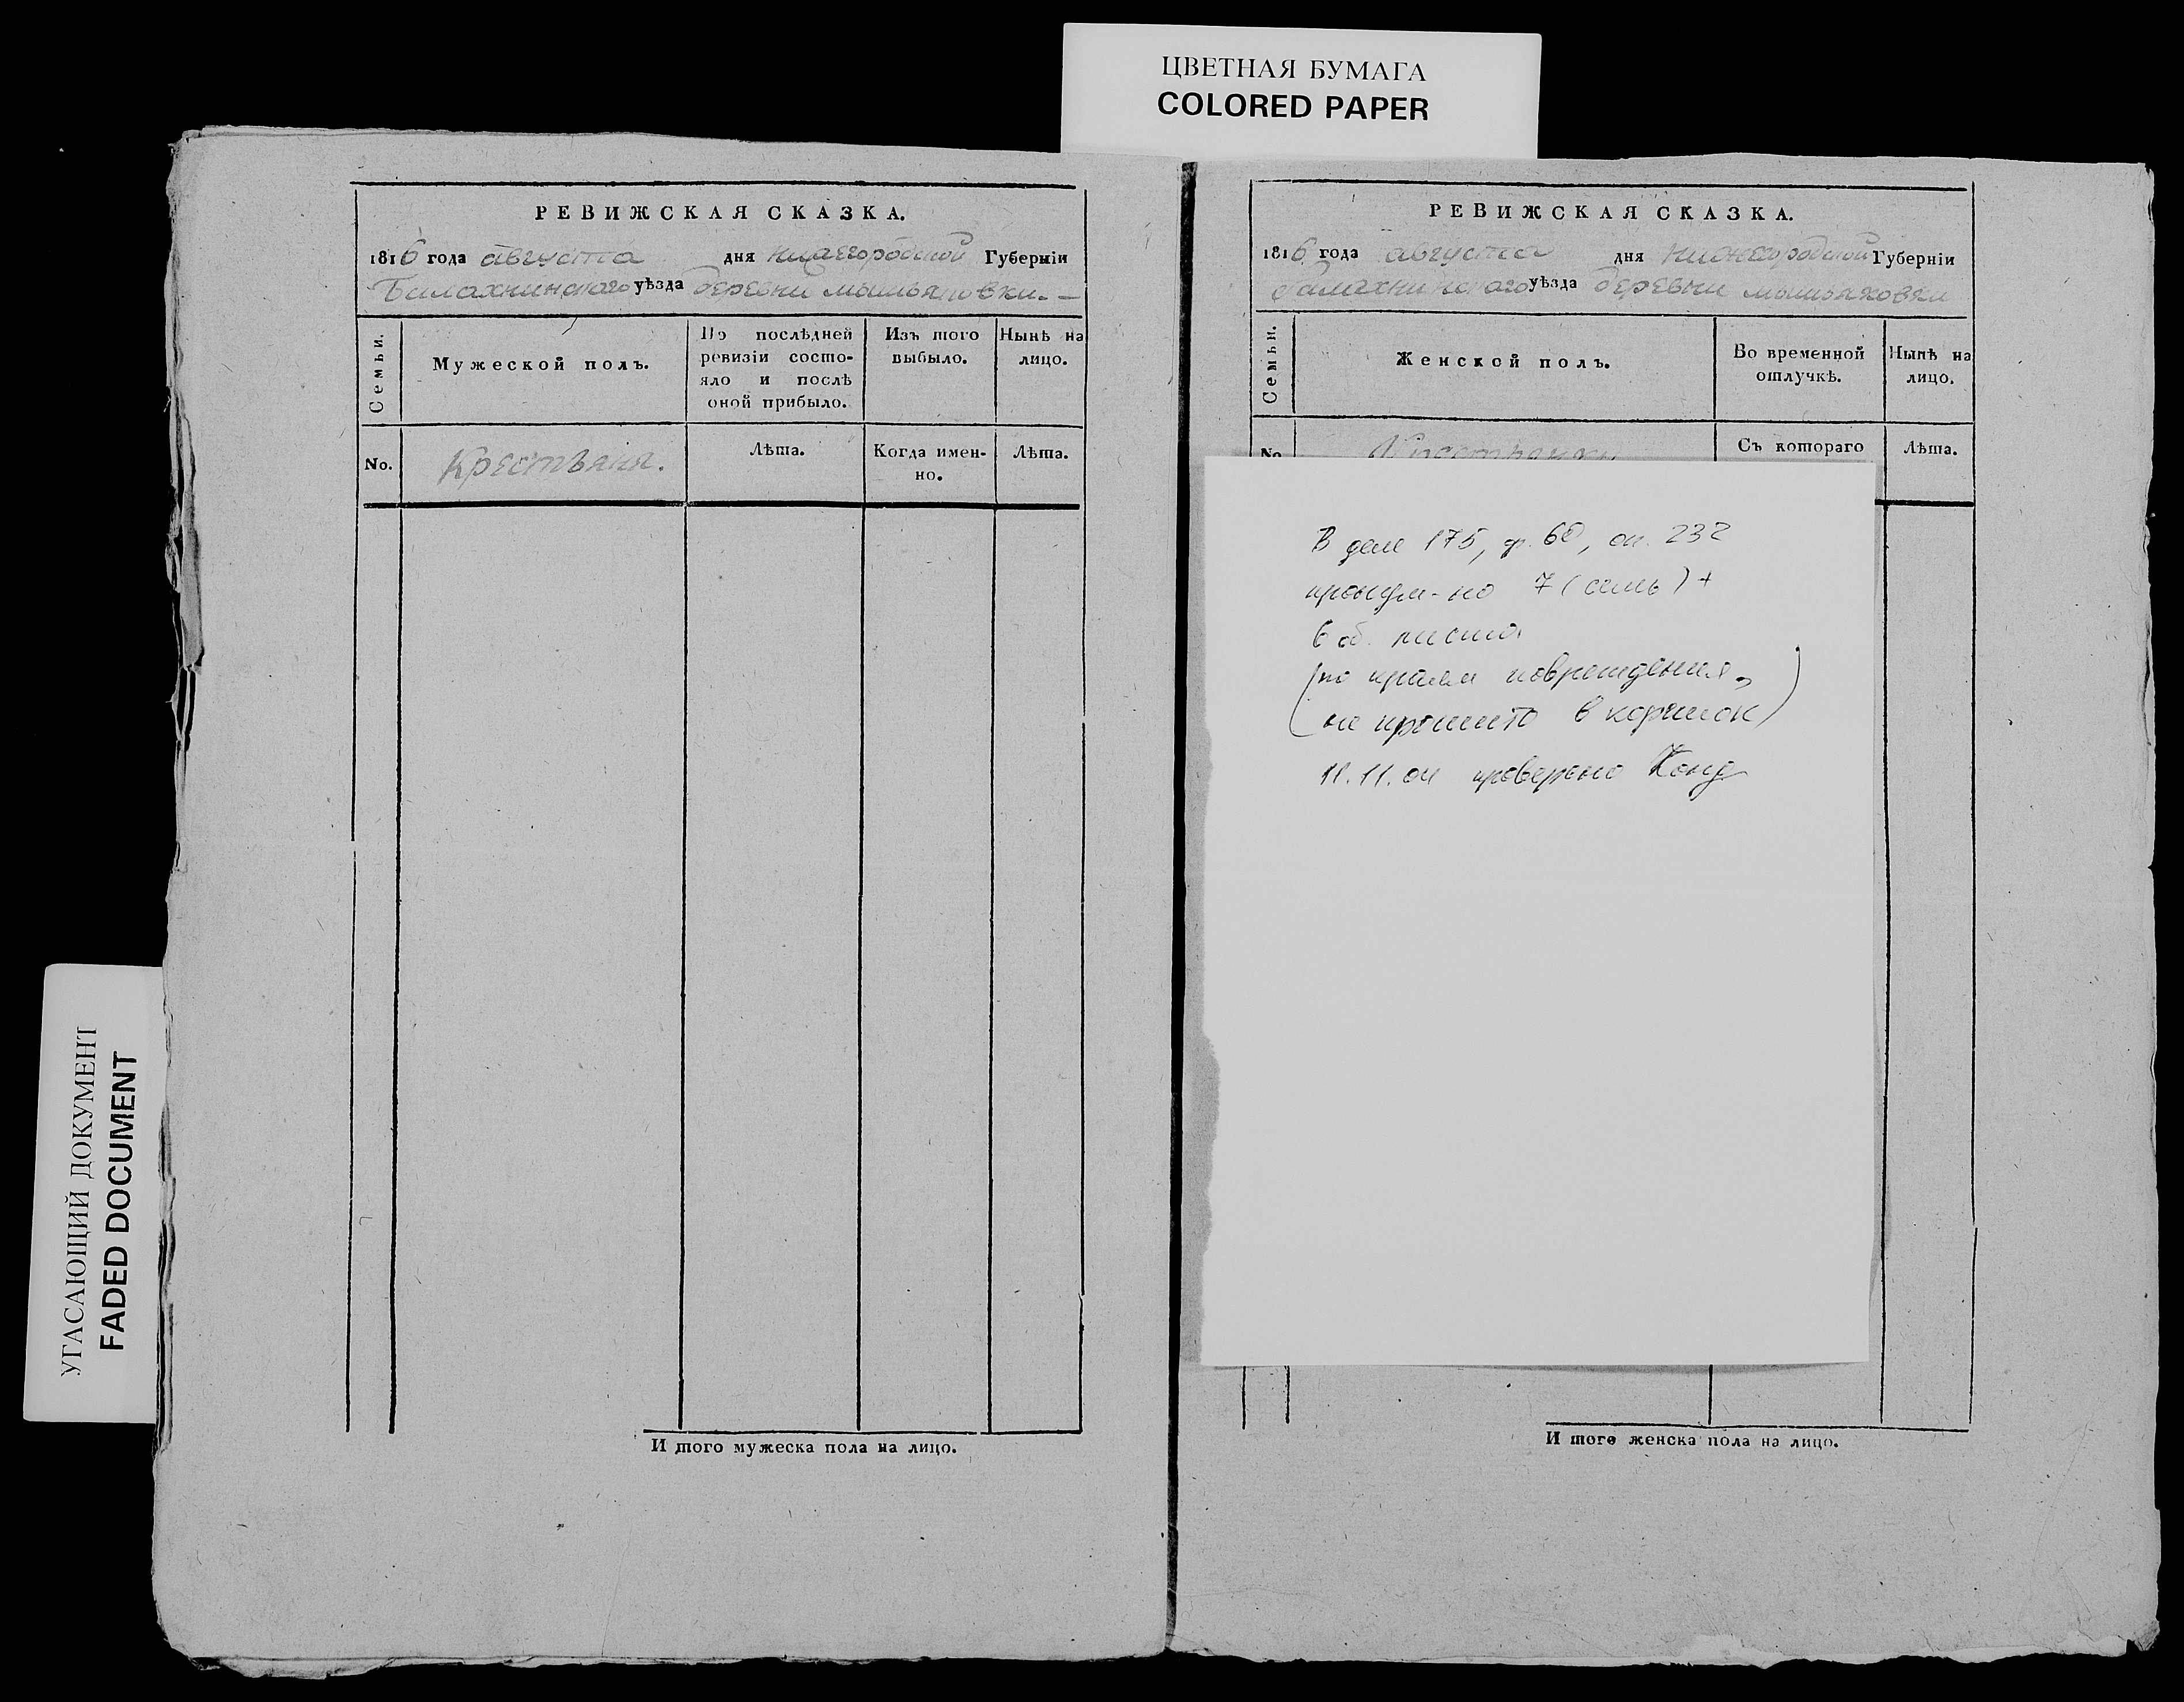 ЦВЕТНАЯ БУМАГА
COLORED PAPER
УГАСАЮЩИЙ ДОКУМЕНТ
FADED DOCUMENT
РЕВИЖСКАЯ СКАЗКА.
1816 года августа дня нижегородской Губерніи
Балахнинскаго уѣзда деревни мышьяковки.
Семьи.
Мужеской полъ.
По послѣдней ревизіи состо-
яло и послѣ оной прибыло.
Изъ того выбыло.
Нынѣ на лицо.
No.
Крестьяня.
Лѣта.
Когда имен-
но.
Лѣта.
И того мужеска пола на лицо.
РЕВИЖСКАЯ СКАЗКА.
1816 года августа дня нижегородской Губерніи
балахнинскаго уѣзда деревни мышьяковки
Семьи.
Женской полъ.
Во временной отлучкѣ.
Нынѣ на лицо.
No.
Съ котораго
Лѣта.
В деле 175, ф. 60, оп. 232
пронум-но 7 (семь) +
6 об. листа
(по краям повреждения,
не прошито в корешок)
11.11.04 проверено
И того женска пола на лицо.